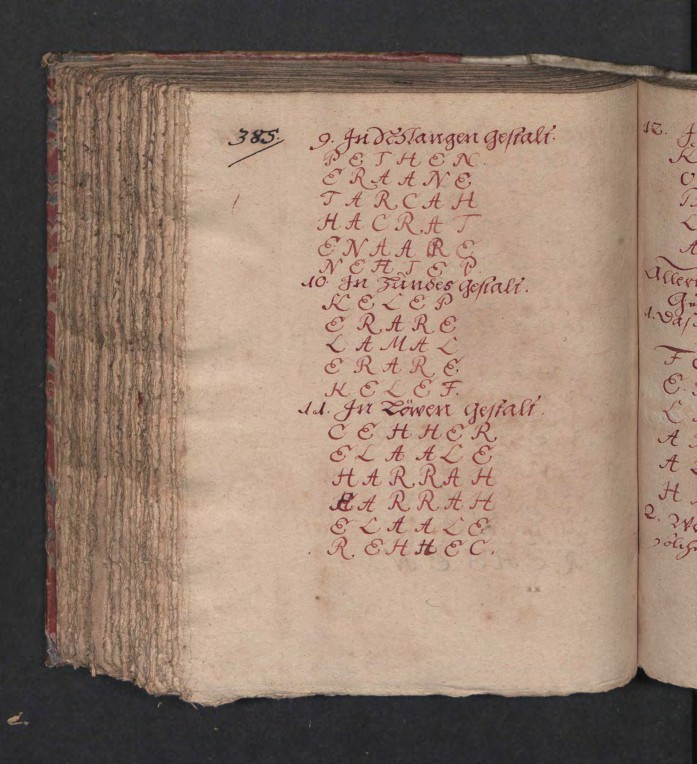 385.
9. In Schlangen Gestalt.
P E T H E N.
E R A A N E
T A R C A H
H A C R A T
E N A A R E
N E H T E P
10. In Hundes Gestalt.
K E L E P
E R A R E
L A M A L
E R A R E.
K E L E F.
11. In Löwen Gestalt.
C E H H E R
E L A A L E
H A R R A H
H A R R A H
E L A A L E
R E H H E C.
12.
K
L
A
1. Daß
F E
E
L
A
A
H
2. We